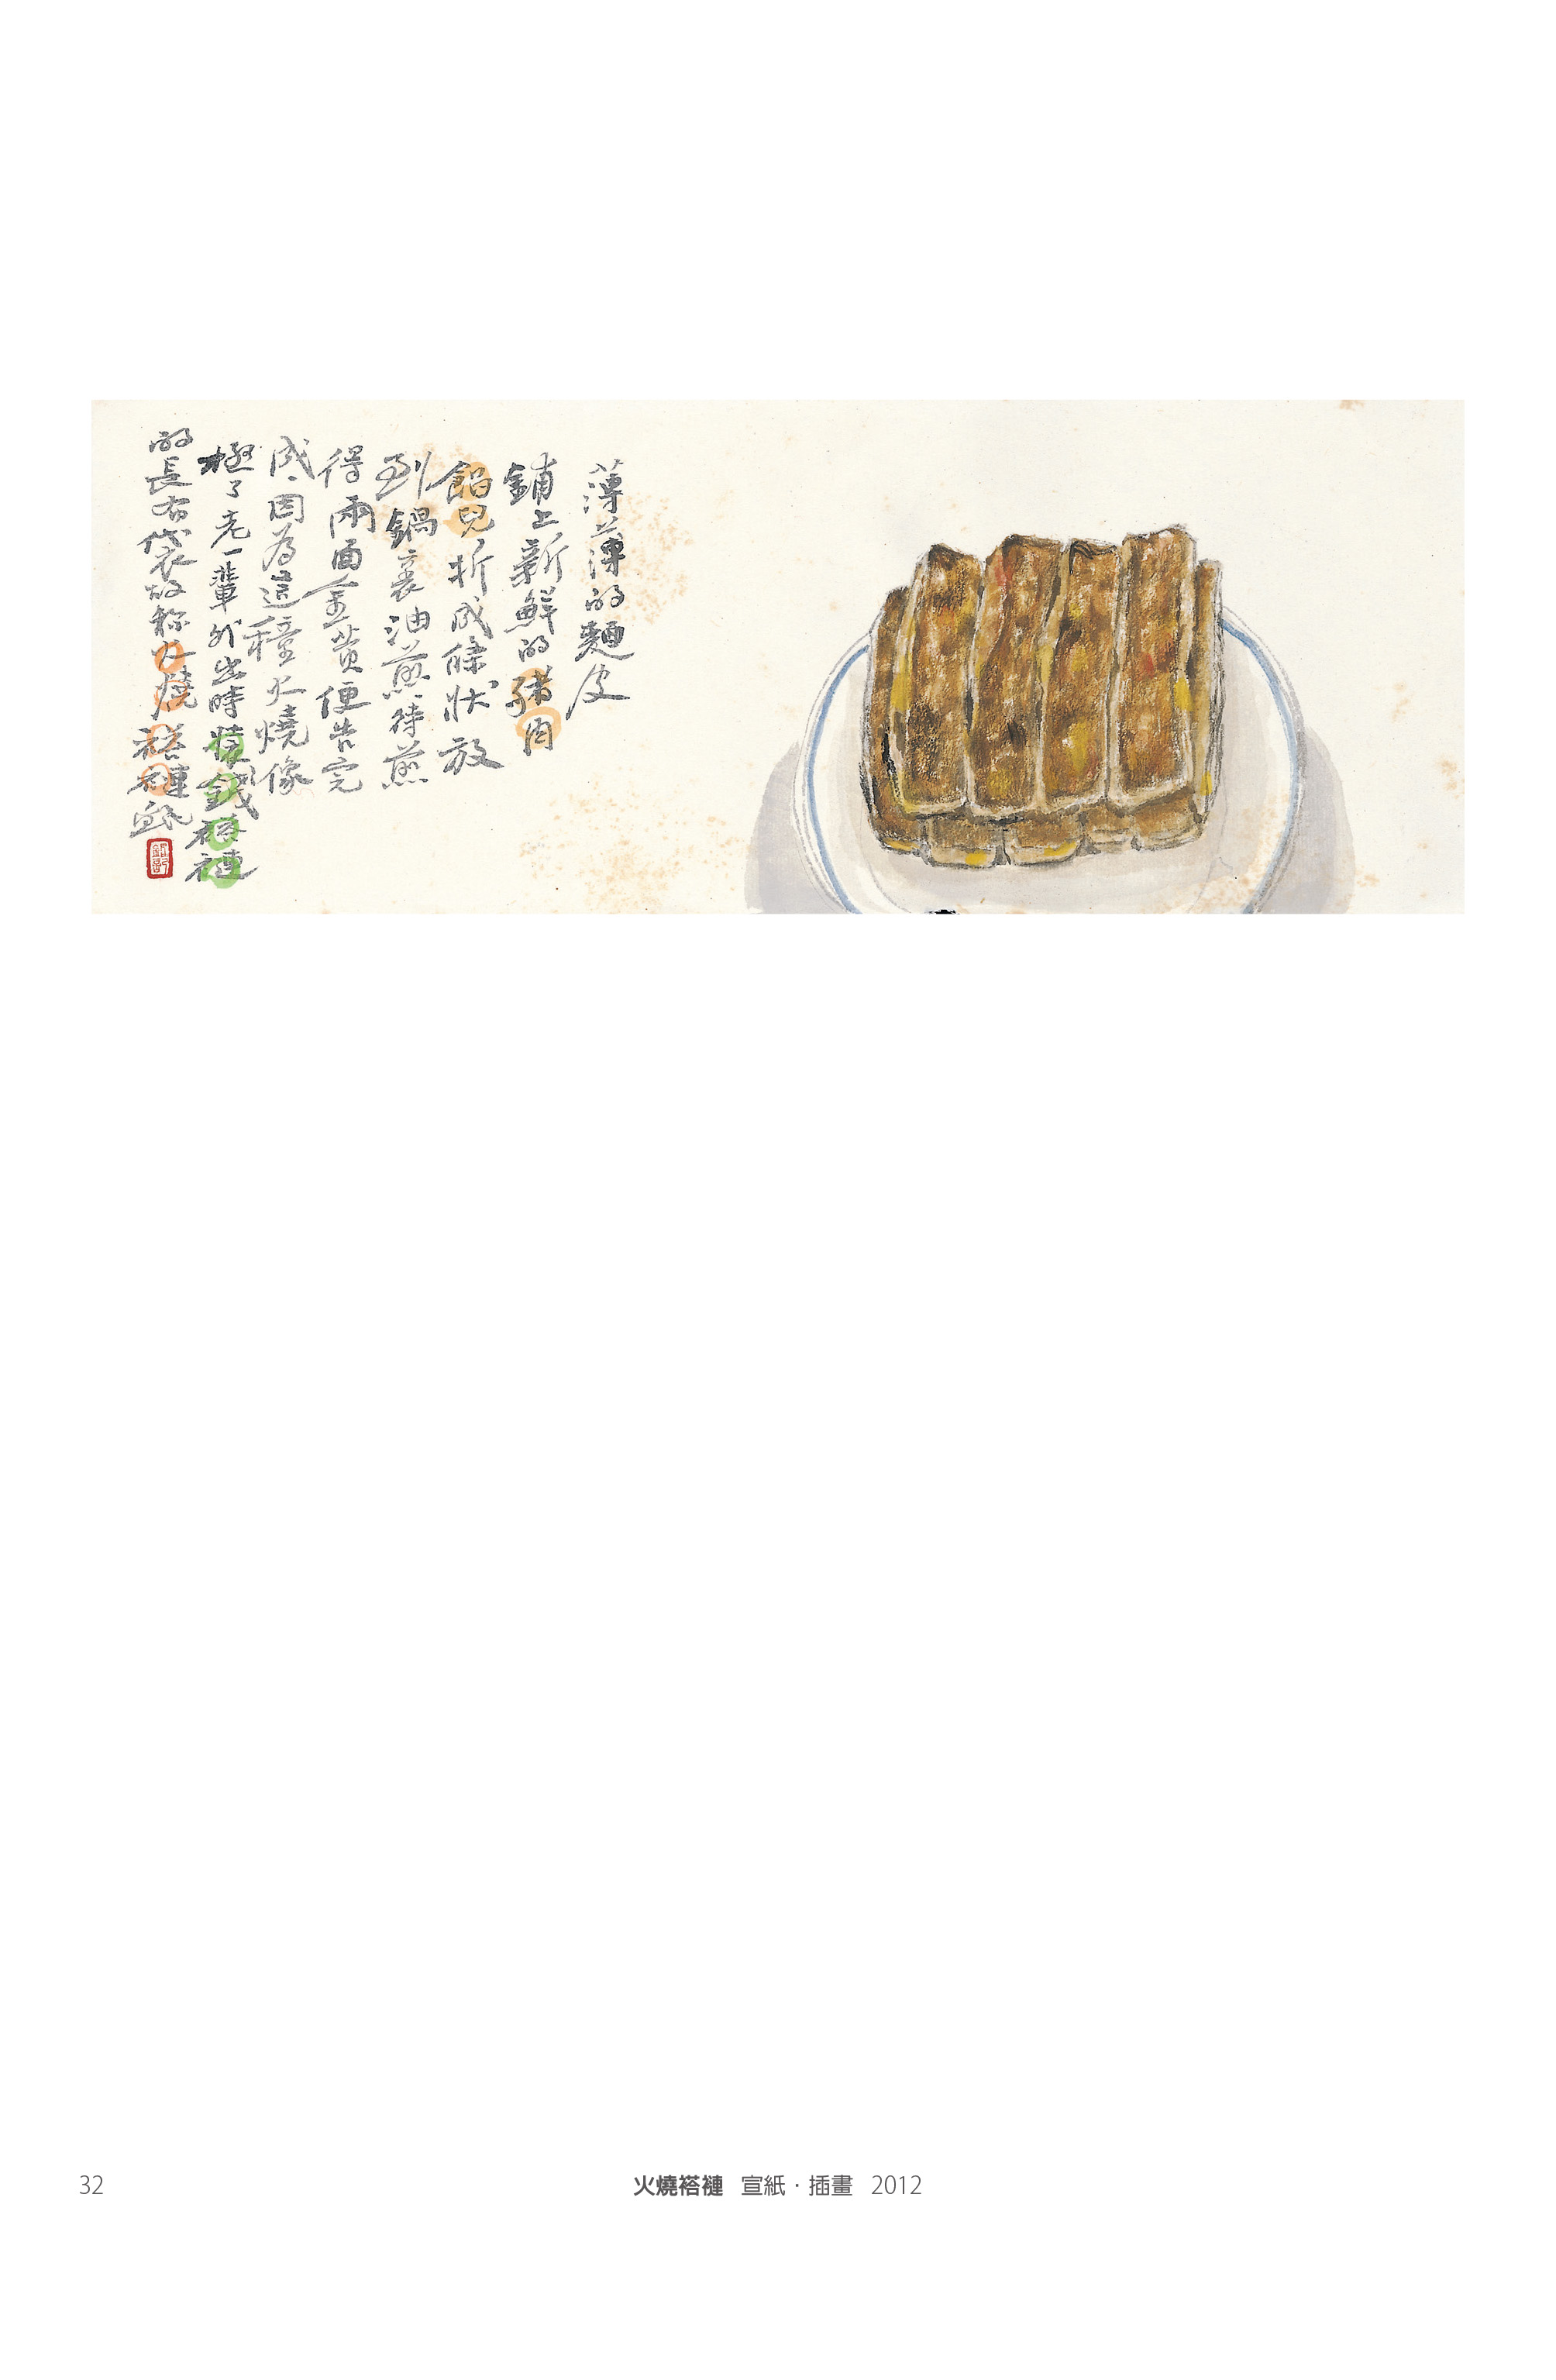 薄薄的麵皮
鋪上新鮮的猪肉
餡兒折成條狀放
到鍋裏油煎待煎
得兩面金黃便告完
成、因為這種火燒像
極了老一輩外出時裝錢褡褳
的長布袋故称火燒褡褳
32
火燒褡褳 宣紙·插畫 2012